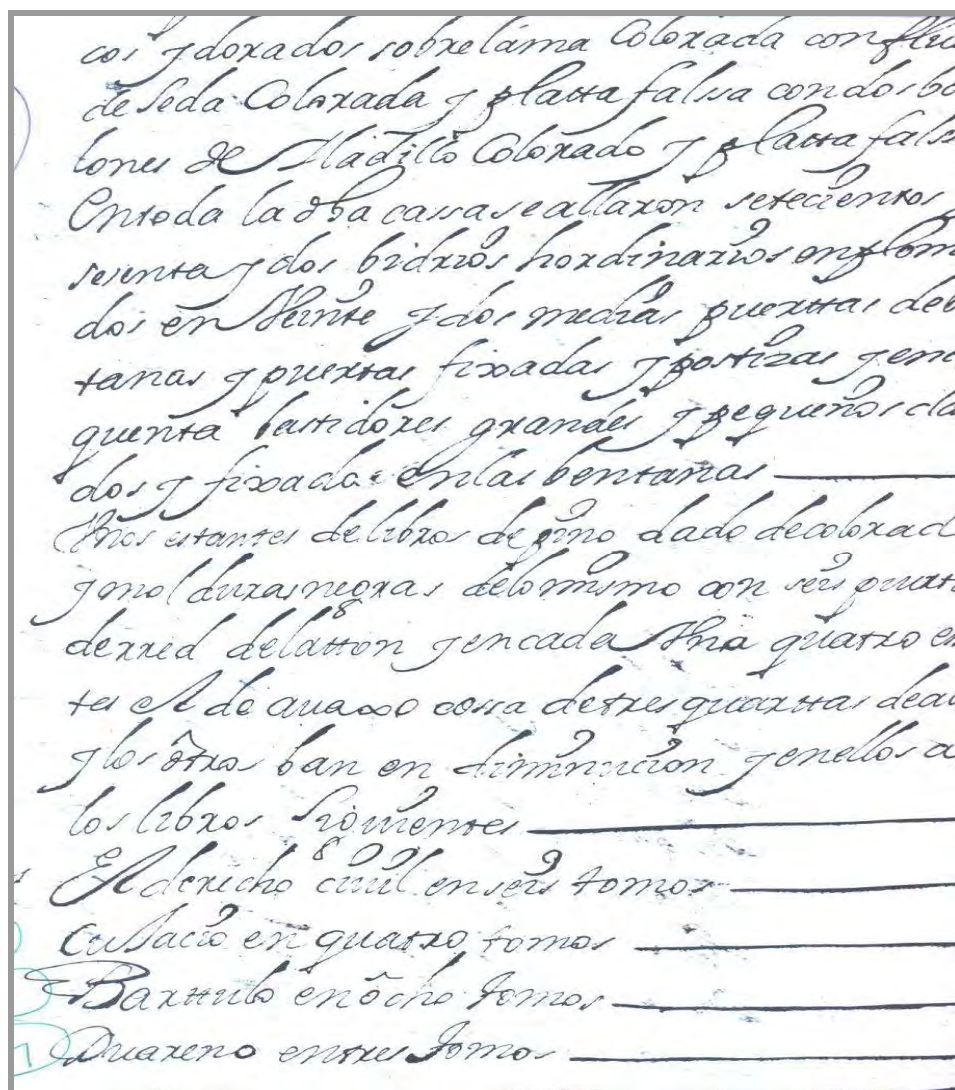 cos y doxados sobre lama Coloxada con flu
de Seda Coloxada y platta falssa con dos bo
tones de Iladillo Coloxado y platta fals
En toda la dha cassa se allaxon setecientos y
sesenta y dos bidrios hordinaxios enplom
dos en Veinte y dos medias puerttas de b
tanas y puertas fixadas y postizas y en
quenta bastidores grandes y pequeños cla
dos y fixados en las bentanas
Vnos estantes de libros de pino dado de coloxad
y molduras negras de lo mismo con seis puert
de rred de latton y en cada Vna quatro e
tes el de auaxo cossa de tres quarttas de a
y los otros ban en diminucion y en ellos a
los libros Siguientes
El derecho ciuil en seis tomos
Cuiacio en quatro tomos
Barttulo en ocho tomos
Duareno en tres tomos